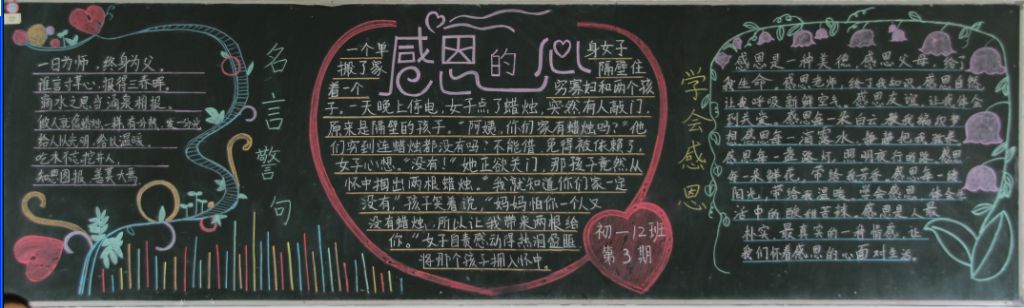 一日为师，终身为父。
谁言寸草心，报得三春晖。
滴水之恩当涌泉相报。
做人就像蜡烛一样，有一分热，发一分光
给人以光明，给以温暖。
吃水不忘挖井人
知恩图报，善莫大焉
名言警句
感恩的心
一个单身女子
搬了家，隔壁住
着一个穷寡妇和两个孩
子。一天晚上停电，女子点了蜡烛，突然有人敲门，
原来是隔壁的孩子。“阿姨，你们家有蜡烛吗？”他
们穷到连蜡烛都没有吗？不能借，免得被依赖了。
女子心想。“没有！”她正欲关门，那孩子竟然从
怀中掏出两根蜡烛。“我就知道你们家一定
没有。”孩子笑着说，“妈妈怕你一个人又
没有蜡烛，所以让我带来两根给
你。”女子自责感动得热泪盈眶
将那个孩子拥入怀中。
初一12班
第3期
学会感恩
感恩是一种美德，感恩父母，给了
我生命，感恩老师，给了我知识，感恩自然
让我呼吸新鲜空气，感恩友谊，让我体会
到关爱，感恩每一朵白云，
感恩每一滴雨水，
感恩每一盏路灯，照明夜行的路，感恩
每一朵鲜花，带给我芳香，感恩每一缕
阳光，带给我温暖，学会感恩，体会生
活中的酸甜苦辣，感恩是人最
朴实、最真实的一种情感，让
我们怀着感恩的心面对生活。